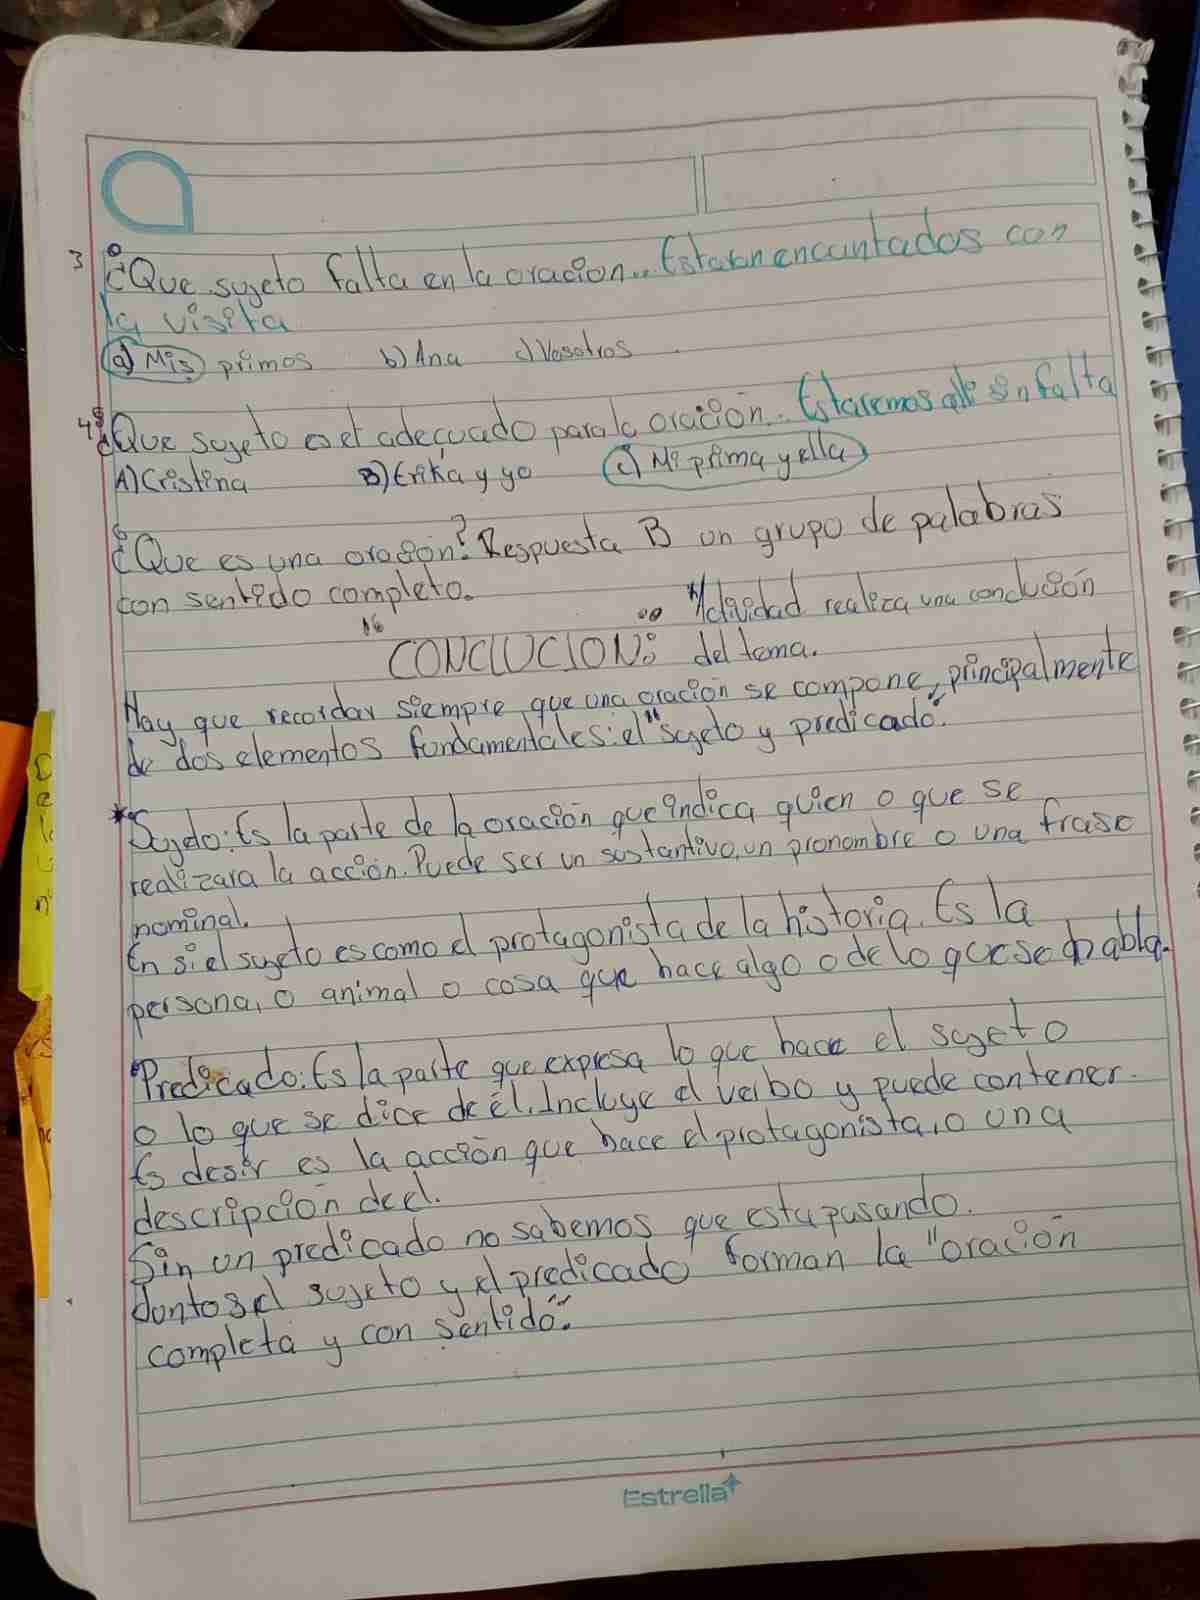 3 ¿Que sujeto falta en la oracion... Estaran encantados con
la visita
a) Mis primos b) Ana c) Vosotros
4 ¿Que sujeto es el adecuado para la oracion... Estaremos alli sin falta
A) Cristina B) Erika y yo c) Mi prima y ella
¿Que es una oracion? Respuesta B un grupo de palabras
con sentido completo.
"Actividad realiza una conclución
CONCLUCION: del tema.
Hay que recordar siempre que una oración se compone, principalmente
de dos elementos fundamentales: el "sujeto y predicado".
*Sujeto: Es la parte de la oración que indica quien o que se
realizara la acción. Puede ser un sustantivo, un pronombre o una frase
nominal.
En si el sujeto es como el protagonista de la historia. Es la
persona, o animal o cosa que hace algo o de lo que se habla.
Predicado: Es la parte que expresa lo que hace el sujeto
o lo que se dice de él. Incluye el verbo y puede contener.
Es desir es la acción que hace el protagonista, o una
descripción de el.
Sin un predicado no sabemos que esta pasando.
Juntos el sujeto y el predicado forman la "oración
completa y con sentido".
Estrella